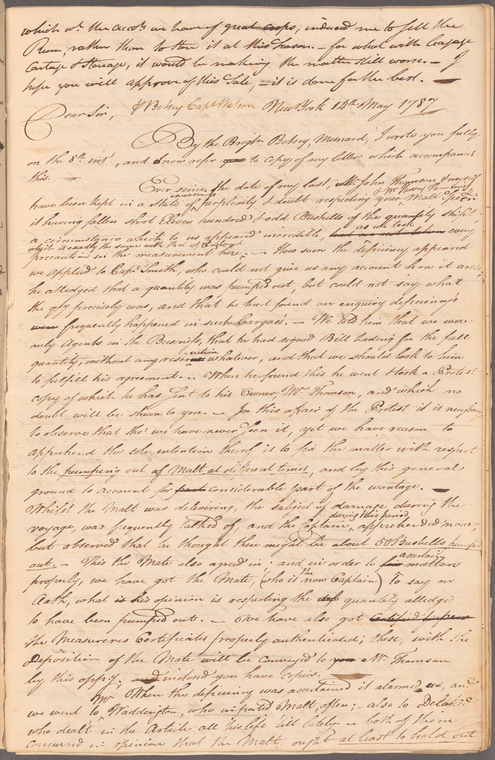 which wt. the accots we have of great crops, induced me to sell the
Rum, rather than to store it at this season. – for what with Leakage
Cartage & Storage, it would be making the matter still worse. – I
hope you will approve of this Sale, – it is done for the best. –
Dear Sir, Betsey Capt Watson New York 14th May 1787
By the Brigtn Betsey, Menard, I wrote you fully
on the 8th inst, and now refer to copy of my letter which accompanies
this.
Ever since the date of my last, John Thomson & myself
have been kept in a state of perplexity & doubt respecting your Malt
it having fallen short Eleven hundred & odd Bushells of the quantity shipt
a circumstance which to us appeared incredible, as we took every
which is exactly the same with that of England
precaution in the measurement here. – How soon the deficiency appeared
we applied to Capt Smith, who could not give us any account how it arose
he alledged that a quantity was pumped out, but could not say what
the qty precisely was, and that he had found on enquiry deficiencys
frequently happened in such Cargoes. – We told him that we were
only Agents in the Business, that he had signed Bill Lading for the full
quantity, without any reservation whatever, and that we should look to him
to fulfill his agreement. – When he found this he went & took a Protest
copy of which he has sent to his Owner, Mr. Thomson, and which no
doubt will be shewn to you. – In this affair of the Protest it is necessary
to observe that tho' we have never seen it, yet we have reason to
apprehend the sole intention thereof is to fix the matter with respect
to the pumping out of Malt at different times, and by this general
ground to account for considerable part of the wantage. –
Whilst the Malt was delivering, the subject of damage during the
voyage, was frequently talked of, and the Captain, during this period apprehended none,
but observed that he thought there might be about 50 Bushells pumpt
out – This the Mate also agreed in; and in order to ascertain matters
properly, we have got the Mate, (who is the now Captain) to say on
Oath, what is his opinion is respecting the quantity alledged
to have been pumped out. – We have also got
the Measurers Certificates properly authenticated; these, with the
Deposition of the Mate will be conveyed to Mr. Thomson
by this oppy; inclosed you have copies.
When the deficiency was ascertained it alarmed us, and
we went to Messrs Waddington, who imported Malt, often; also to Delafield
who dealt in the Article all his life till lately – both of them
concurred in opinion that the Malt, ought at least to hold out